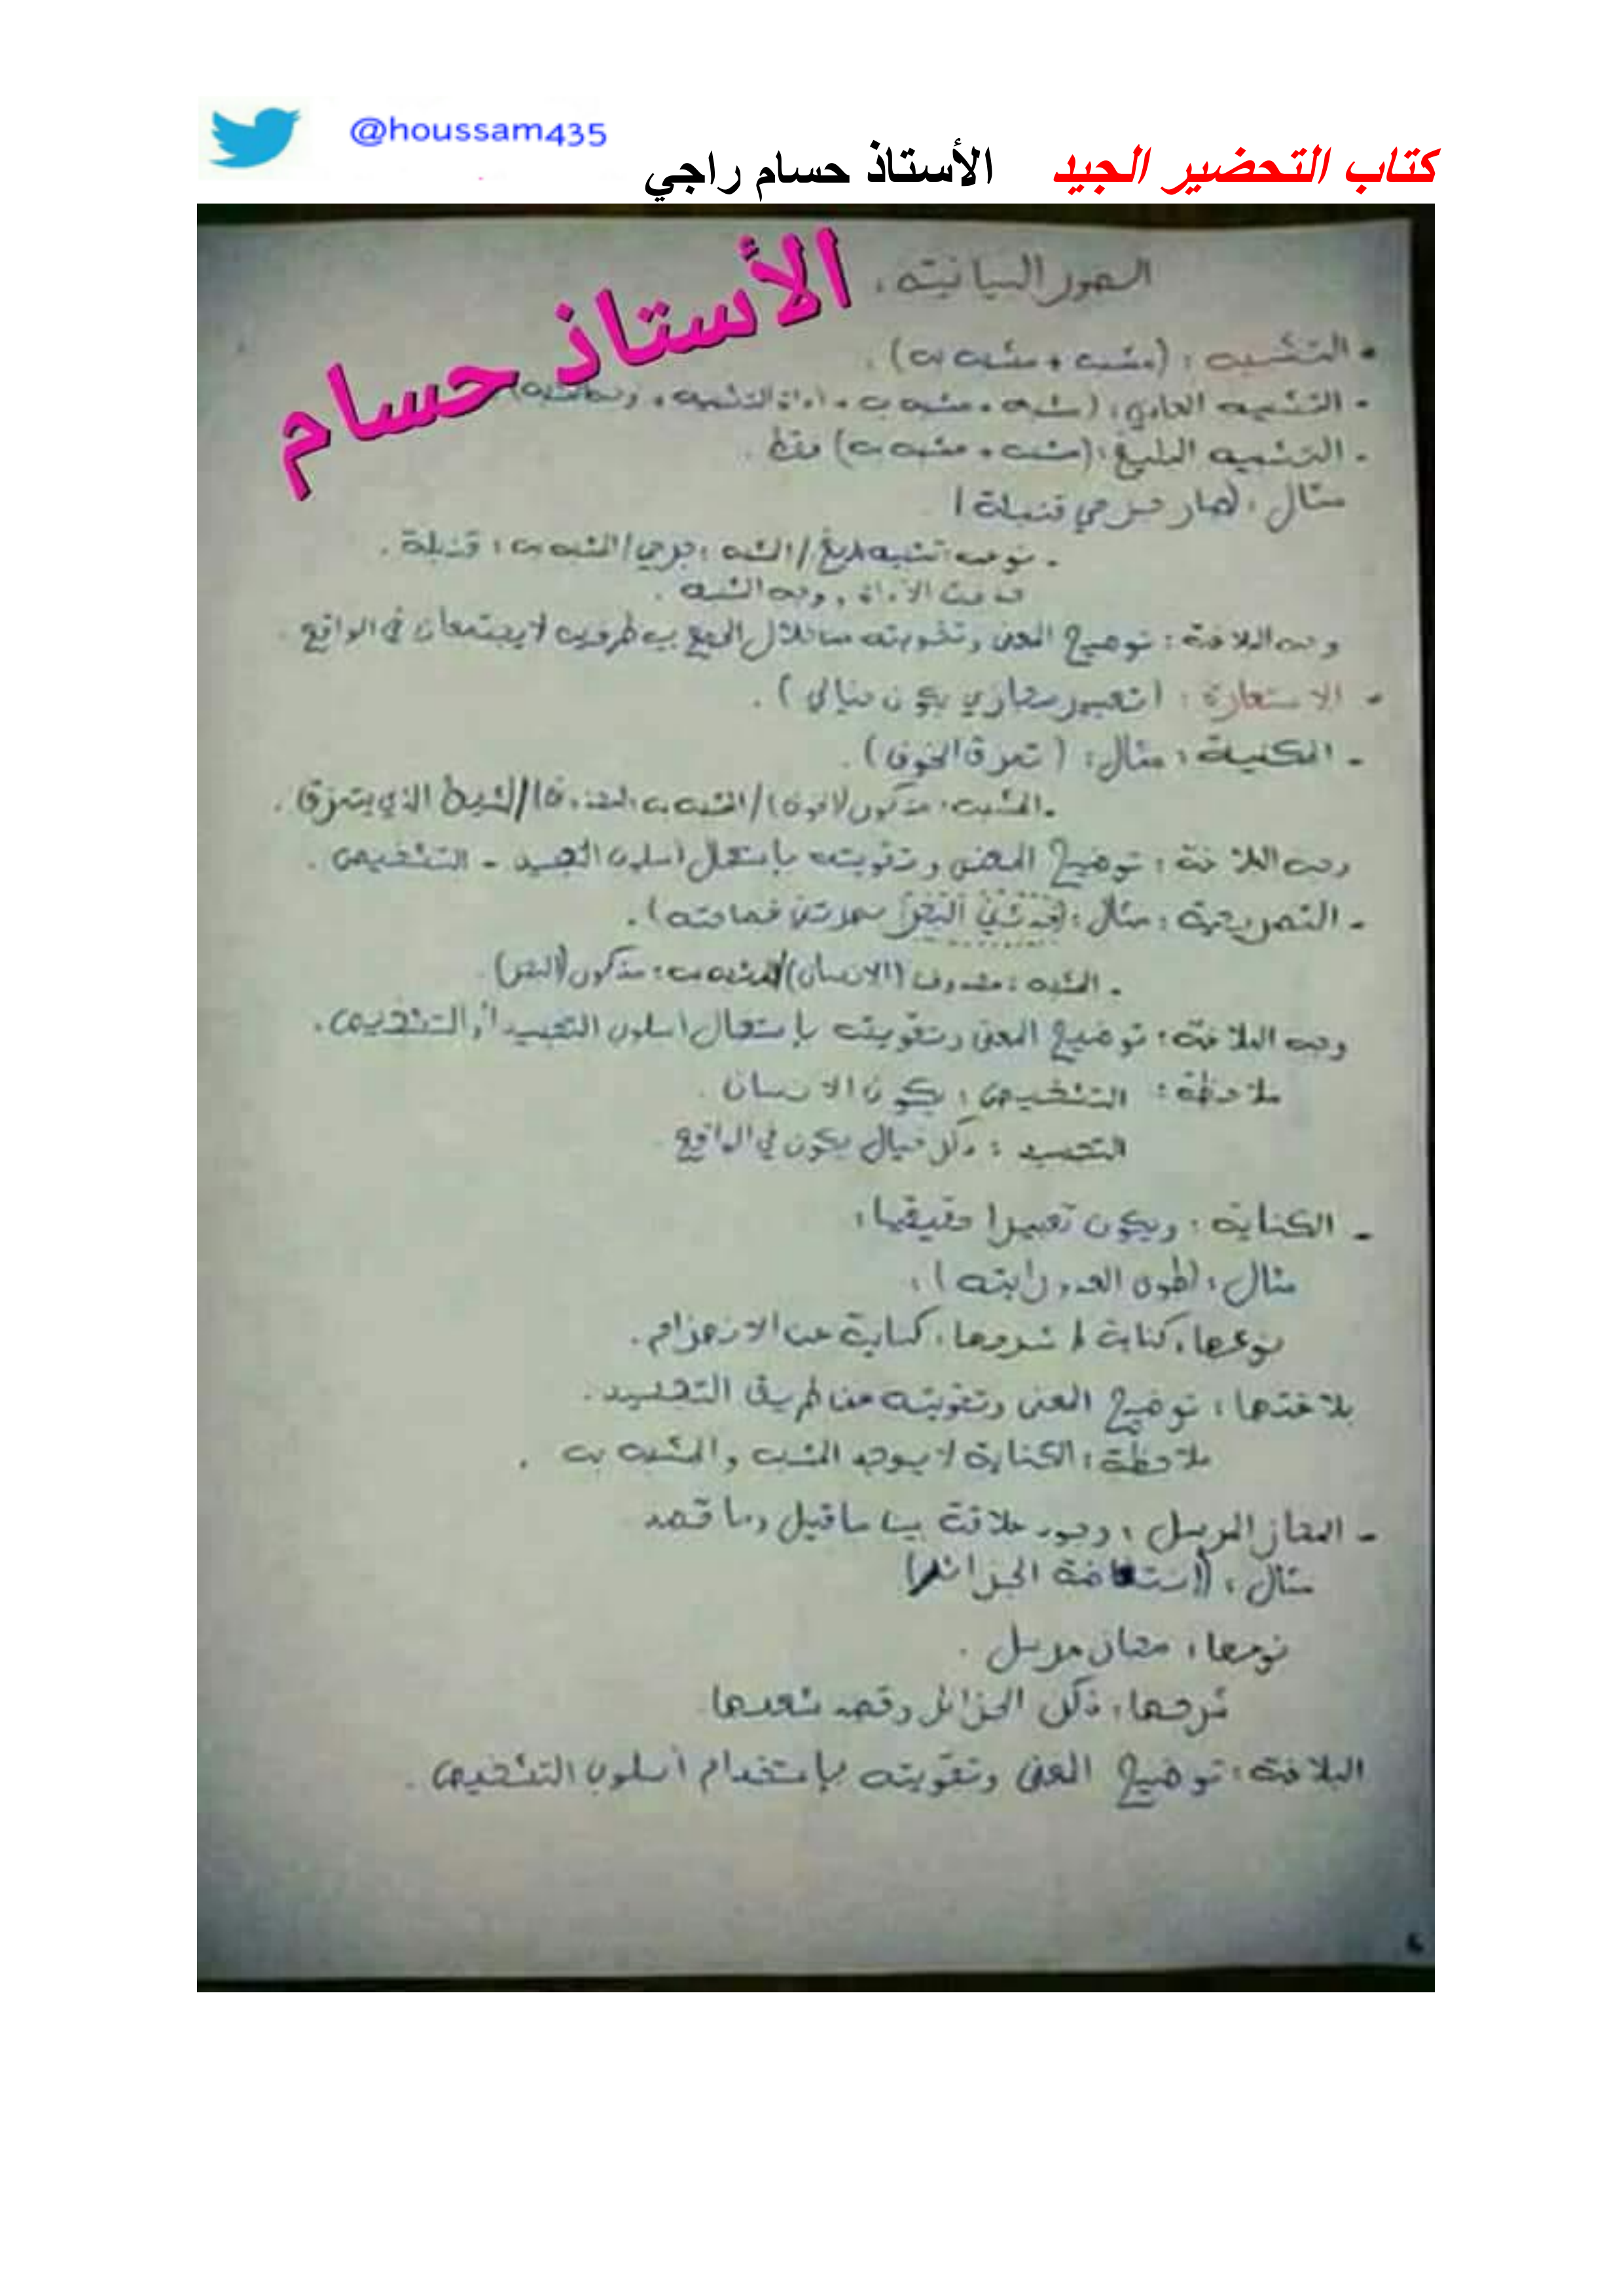 @houssam435
كتاب التحضير الجيد الأستاذ حسام راجي
الأستاذ حسام
الصور البيانية:
- التشبيه: (مشبه + مشبه به).
- التشبيه العادي: (مشبه + مشبه به + أداة التشبيه +
- التشبيه البليغ: (مشبه + مشبه به) فقط.
مثال: (صار جرحي قنبلة)
- نوعه: تشبيه بليغ / المشبه: جرحي / المشبه به: قنبلة.
حذفت الأداة، وجه الشبه.
وجه البلاغة: توضيح المعنى وتقويته من خلال الجمع بين طرفين لا يجتمعان في الواقع.
- الاستعارة: (تعبير مجازي يكون خيالي).
- المكنية: مثال: (تمزق الخوف).
- المشبه: مذكور (الخوف) / المشبه به الشيء الذي يتمزق.
وجه البلاغة: توضيح المعنى وتقويته بإستعمال أسلوب التجسيد - التشخيص.
- التصريحية: مثال: سحرتني فصاحته).
- المشبه: محذوف (الإنسان) / المشبه به: مذكور
وجه البلاغة: توضيح المعنى وتقويته بإستعمال أسلوب التجسيد أو التشخيص.
ملاحظة: التشخيص: يكون الإنسان.
التجسيد: خيال يكون في الواقع
- الكناية: ويكون تعبيرا حقيقيا:
مثال: (طوى العدو رايته):
نوعها: كناية / شرحها: كناية عن الانهزام.
بلاغتها: توضيح المعنى وتقويته عن طريق التجسيد.
ملاحظة: الكناية لا يوجد المشبه والمشبه به.
- المجاز المرسل: وجود علاقة بين ما قيل وما قصد
مثال: الجزائر)
نوعها: مجاز مرسل.
شرحها: ذكر الجزائر وقصد شعبها
البلاغة: توضيح المعنى وتقويته بإستخدام أسلوب التشخيص.
6